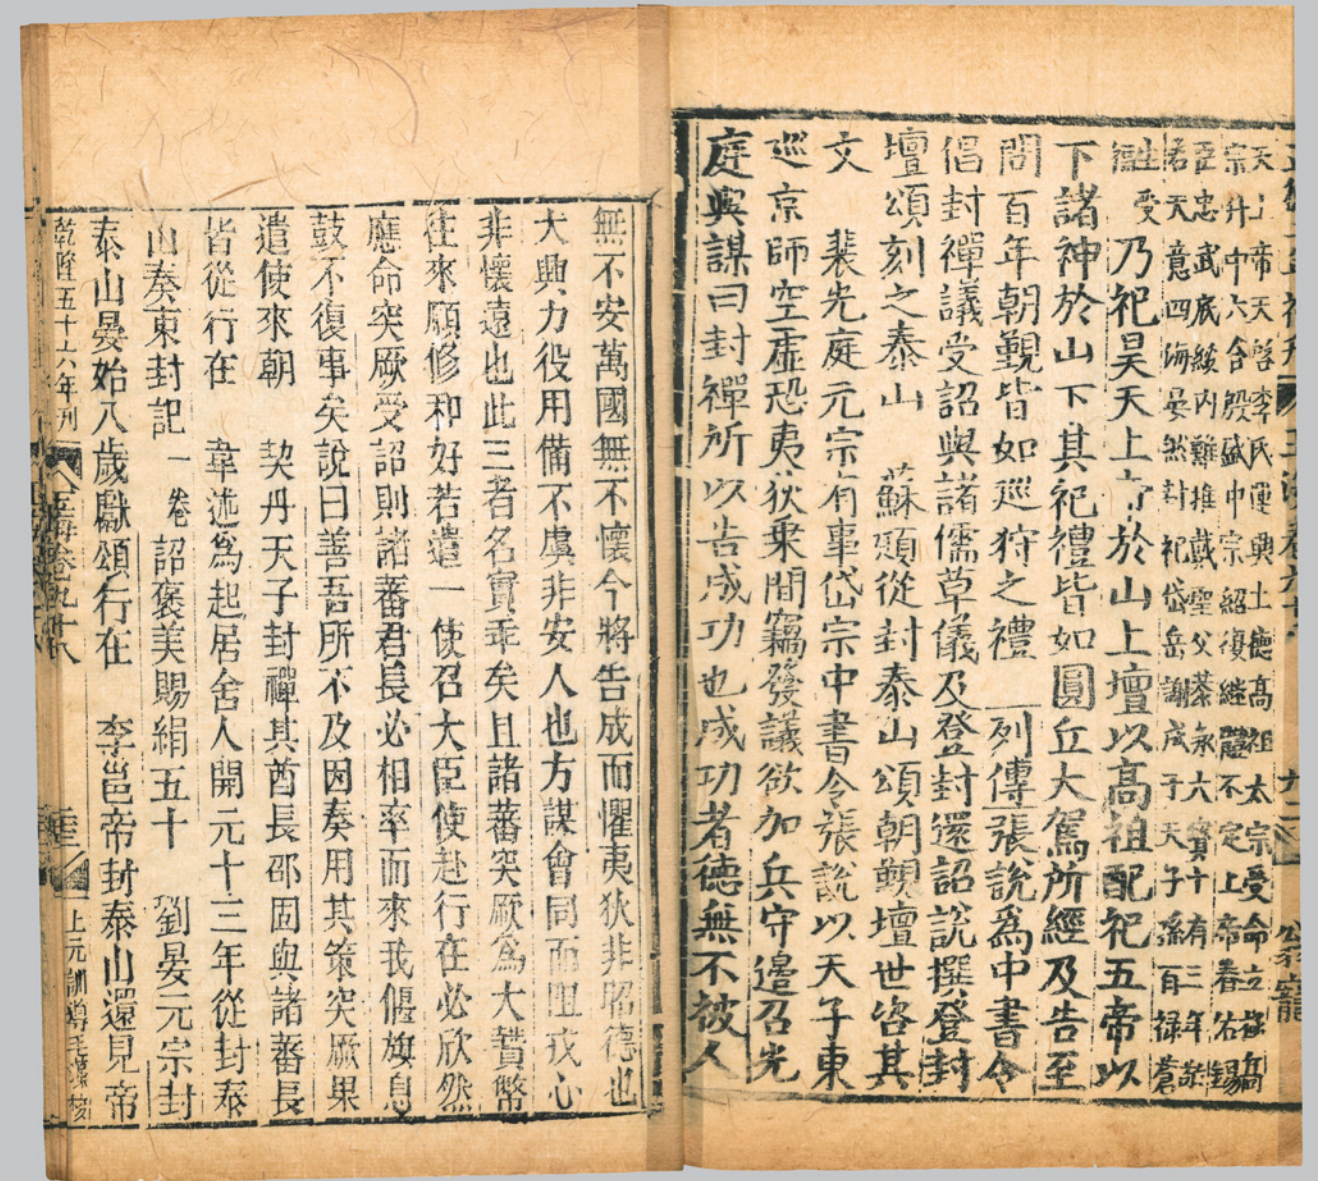 天上帝天啓李氏運興土德高祖太宗受命立極高
宗升中六合殷盛中宗紹復繼體不定上帝眷佑錫
臣忠武底綏内難推戴聖父恭永六寶十有三年敬
若天意四海晏然封祀岱岳謝成于天子孫百祿蒼
生受
福
乃祀昊天上帝於山上壇以高祖配祀五帝以
下諸神於山下其祀禮皆如圓丘大駕所經及告至
問百年朝覲皆如巡狩之禮 列傳張說爲中書令
倡封禪議受詔與諸儒草儀及登封還詔說撰登封
壇頌刻之泰山 蘇頲從封泰山頌朝覲壇世咨其
文 裴光庭元宗有事岱宗中書令張說以天子東
巡京師空虛恐夷狄乗間竊發議欲加兵守邊召光
庭與謀曰封禪所以告成功也成功者德無不被人
無不安萬國無不懷今將告成而懼夷狄非昭德也
大興力役用備不虞非安人也方謀會同而阻戎心
非懷遠也此三者名實乖矣且諸蕃突厥爲大贄幣
往來願修和好若遣一使召大臣使赴行在必欣然
應命突厥受詔則諸蕃君長必相率而來我偃旗息
鼓不復事矣說曰善吾所不及因奏用其策突厥果
遣使來朝 契丹天子封禪其酋長邵固與諸蕃長
皆從行在 韋述爲起居舍人開元十三年從封泰
山奏東封記一卷 詔褒美賜絹五十 劉晏元宗封
泰山晏始八歲獻頌行在 李邕帝封泰山還見帝
乾隆五十六年刋 玉海卷九十八 上元訓導毛藻校